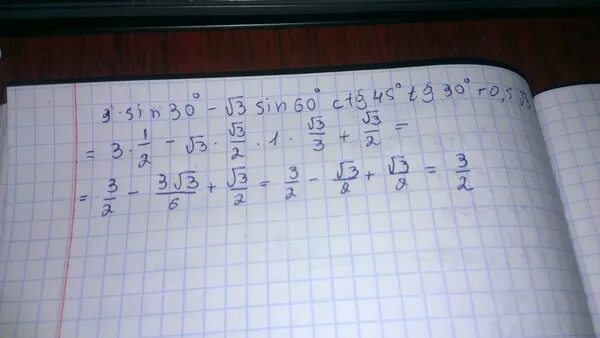 3·sin30° - √3 sin60° ctg45° tg30° + 0,5√3
= 3·1/2 - √3·√3/2·1·√3/3 + √3/2 =
= 3/2 - 3√3/6 + √3/2 = 3/2 - √3/2 + √3/2 = 3/2